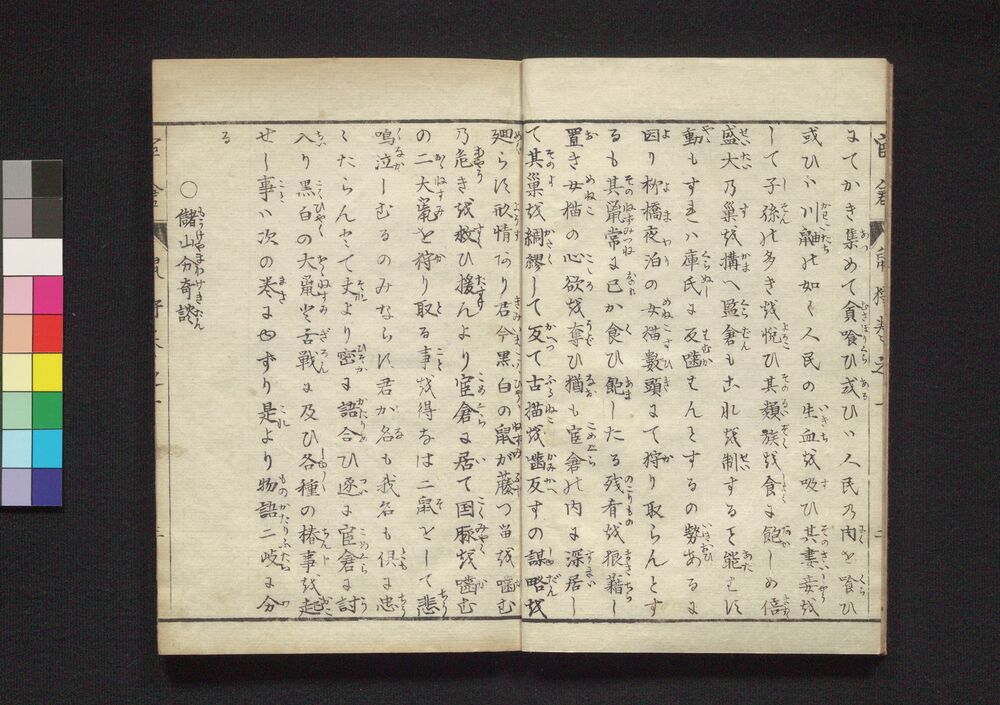 にてかき集めて貪喰ひ或ひハ人民乃肉を喰ひ
或ひハ川鼬の如く人民の生血を吸ひ其妻妾を
して子孫の多きを悦び其類族を食に飽しめ倍
盛大乃巣を構へ監倉もこれを制すること能はず
動もすれハ庫氏に反噛せんとするの勢あるに
因り柳橋夜泊の女猫数頭にて狩り取らんとす
るも其鼠常に已か食ひ飽したる残肴を狼藉し
置き女猫の心欲を奪ひ猶も官倉の内に深居し
て其巣を綢繆して反て古猫を噛反すの謀略を
廻らす形情なり君今黒白の鼠が藤つ苗を噛む
乃危きを救ひ援んより官倉に居て国豚を噛む
の二大鼠を狩り取る事を得なは二鼠をして悲
鳴泣しむるのみならす君が名も我名も倶に忠
くたらんとて丈より密に語合ひ遂に官倉に討
入り黒白の大鼠と舌戦に及ひ各種の椿事を起
せし事ハ次の巻にゆずり是より物語二岐に分
る
○儲山分奇談